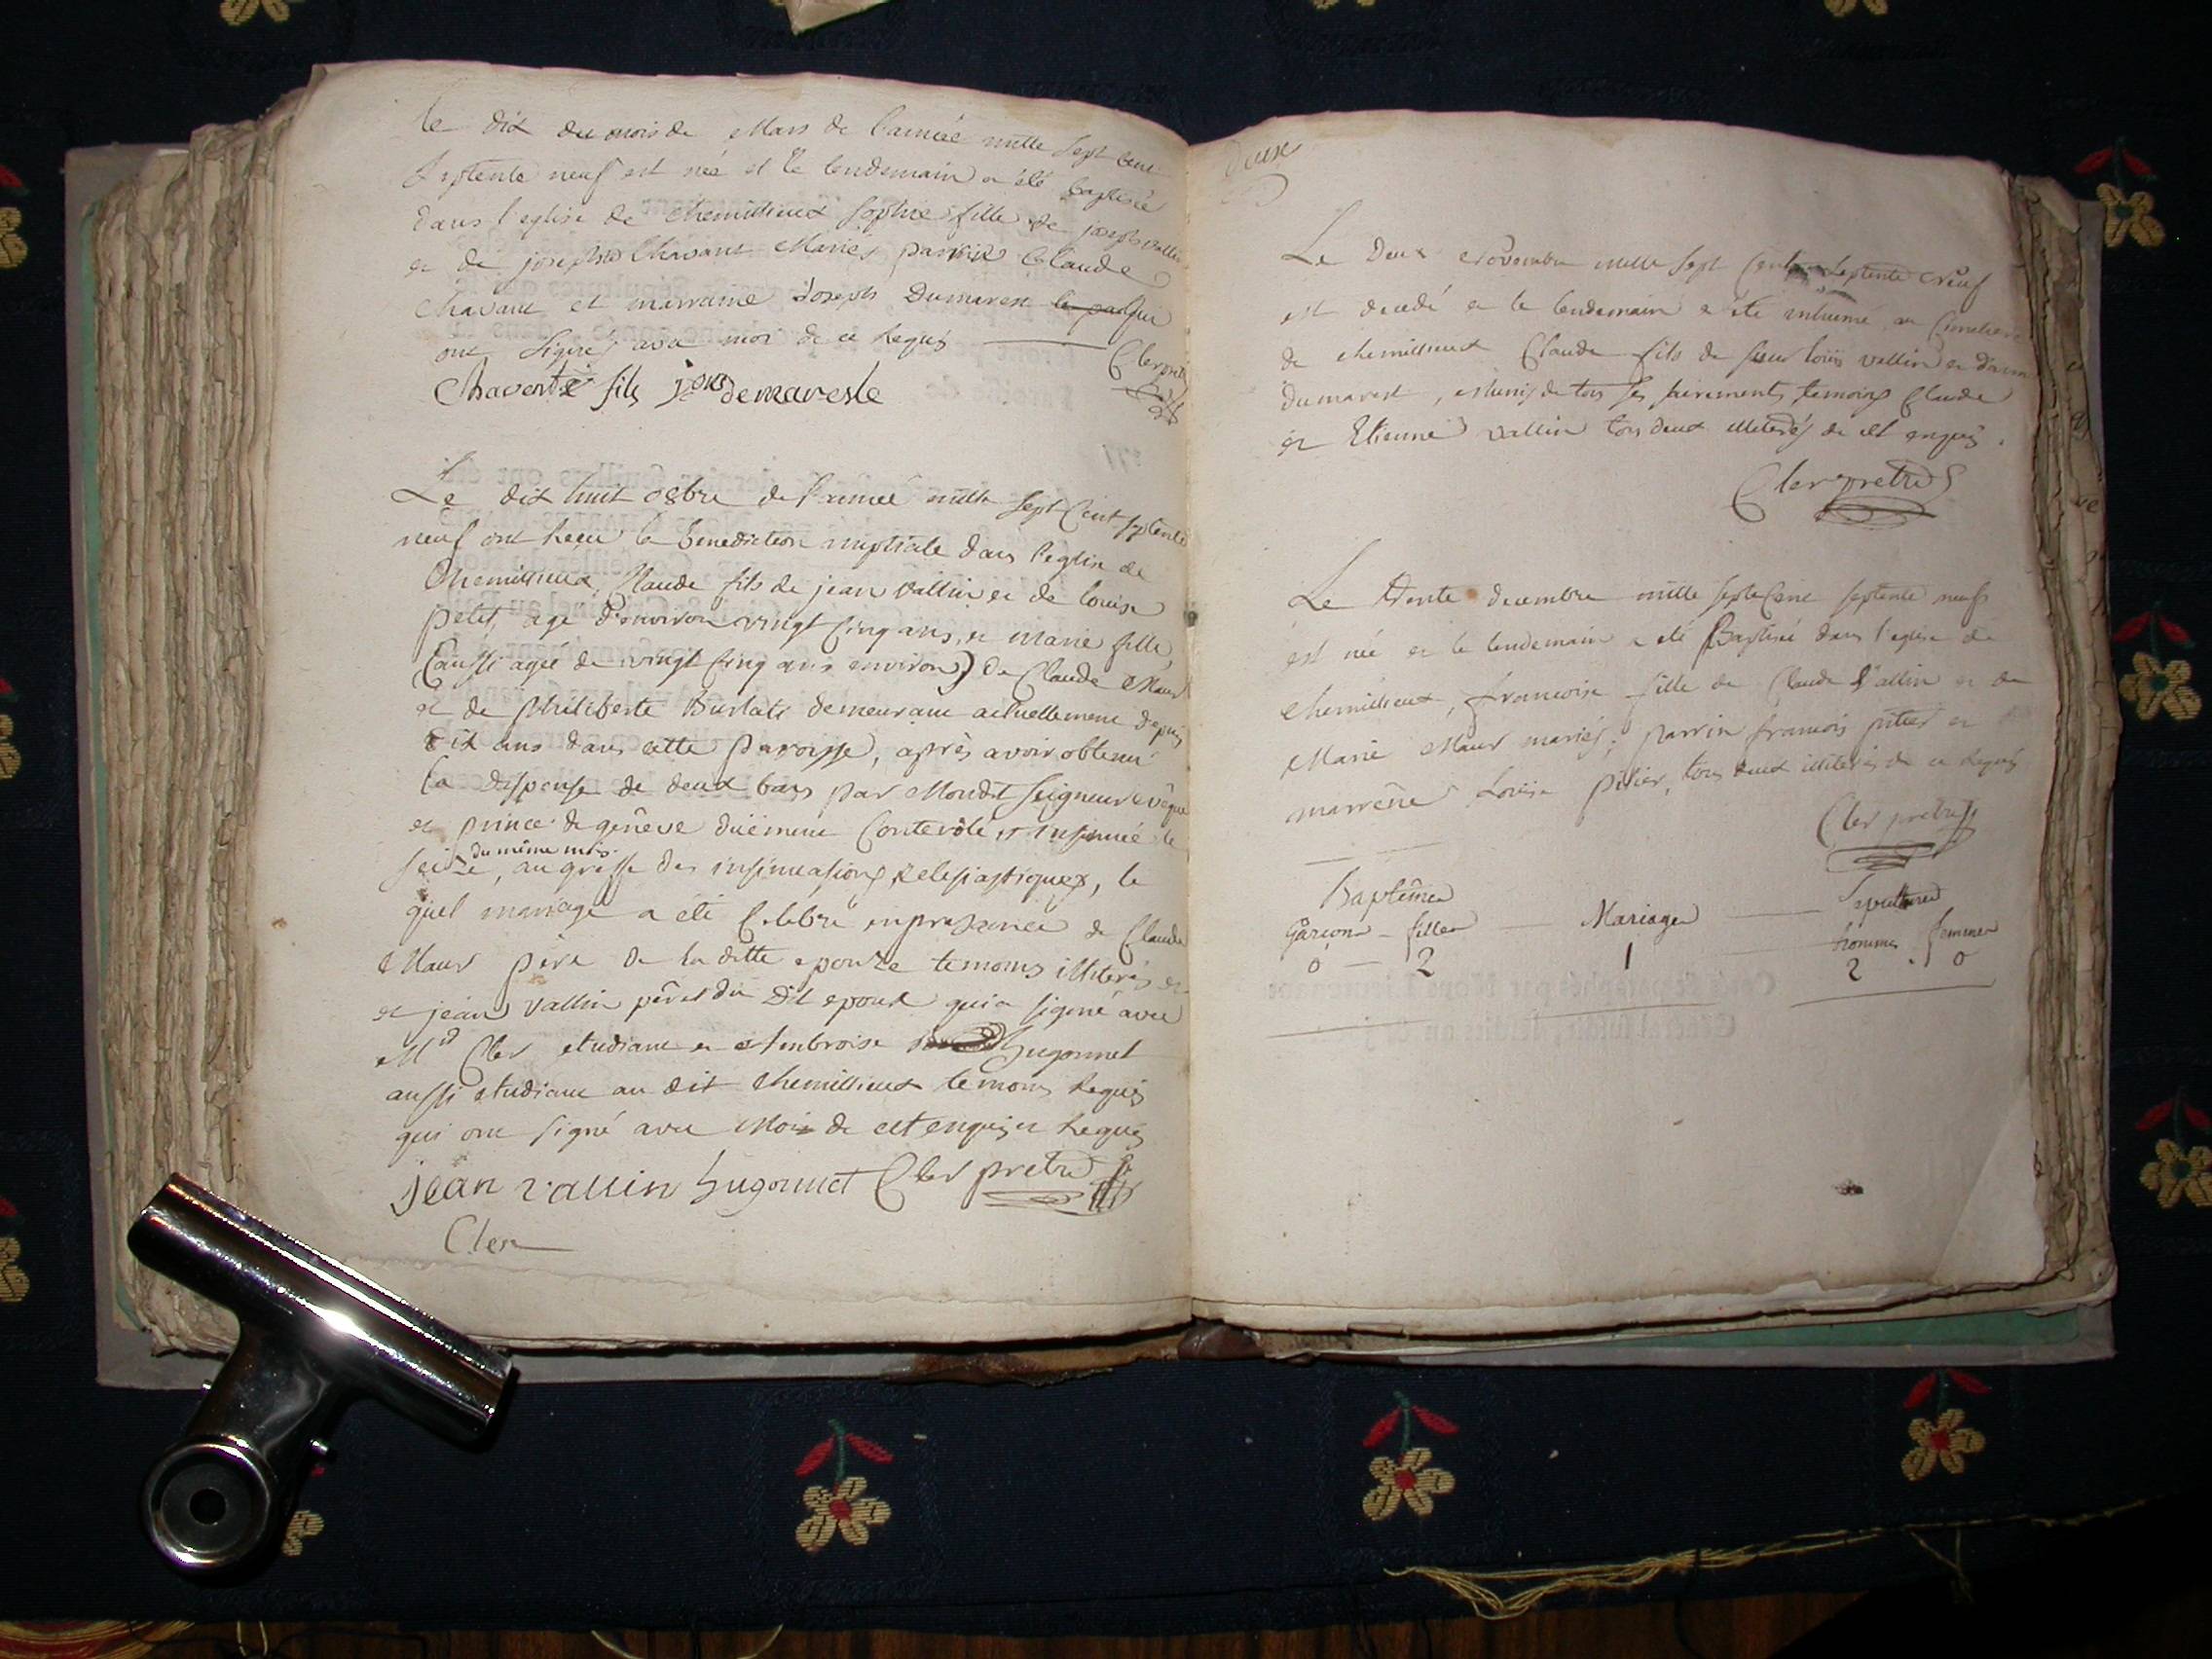 le dix du mois de Mars de l'année mille Sept Cent
Septente neuf est née et le lendemain a été baptisée
dans l'eglise de Chemillieux Sophie fille de joseph vallin
et de Chavant Mariés parrein Claude
Chavant et marraine Joseph Dumarest le par qui
ont Signés avec moi de ce Requis
Cler pretre
Chavent fils demareste
Le dix huit 8bre de l'année mille Sept Cent Septente
neuf ont Reçu la Benediction nuptiale dans l'eglise de
Chemillieux, Claude fils de jean Vallin et de louise
petit, agé d'environ vingt Cinq ans, et Marie fille
(aussi agée de vingt Cinq ans environ) de Claude Maur
et de philiberte Burlats demeurant actuellement depuis
dix ans dans cette paroisse, après avoir obtenu
la dispense de deux bans par Mondit Seigneur evêque
et prince de genêve düement Conterolé et insinué le
du même mois
Seize, au greffe des insinuasions Eclesiastiques, le
quel mariage a été Celebré en presance de Claude
Maur père de la ditte epouze temoins illiterés et
et jean Vallin père du Dit epoux qui a signé avec
Mr Cler etudiant et Ambroise hugonnet
aussi etudiant au dit Chemillieux temoins Requis
qui ont signé avec Moi de cet enquis et Requis
jean vallin hugonnet Cler pretre
Cler
deux
Le Deux Novembre mille Sept Cent Septente Neuf
est decedé et le lendemain a été inhumé au Cimetiere
de chemillieux Claude fils de loüis vallin et
Dumarest, et munis de tous ses sairements temoins Claude
et Etienne vallin tous deux illiterés de cet enquis.
Cler pretre
Le trente decembre mille Sept Cent septente neuf
est née et le lendemain a été Baptisée dans l'eglise de
Chemillieux, francoise fille de Claude Vallin et de
Marie Maur mariés; parrin francois pitier et
marrêne Louise pitier, tous deux illiterés de ce Requis
Cler pretre
Baptêmes Mariages Sepultures
Garcons - filles hommes . femmes
0 — 2 1 2 . 0